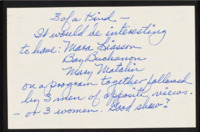 3 of a Kind —
It would be interesting
to have: Mara Liasson
Bay Buchanan
Mary Matalin
on a program together followed
by 3 men of opposite views.
— or 3 women. Good show?